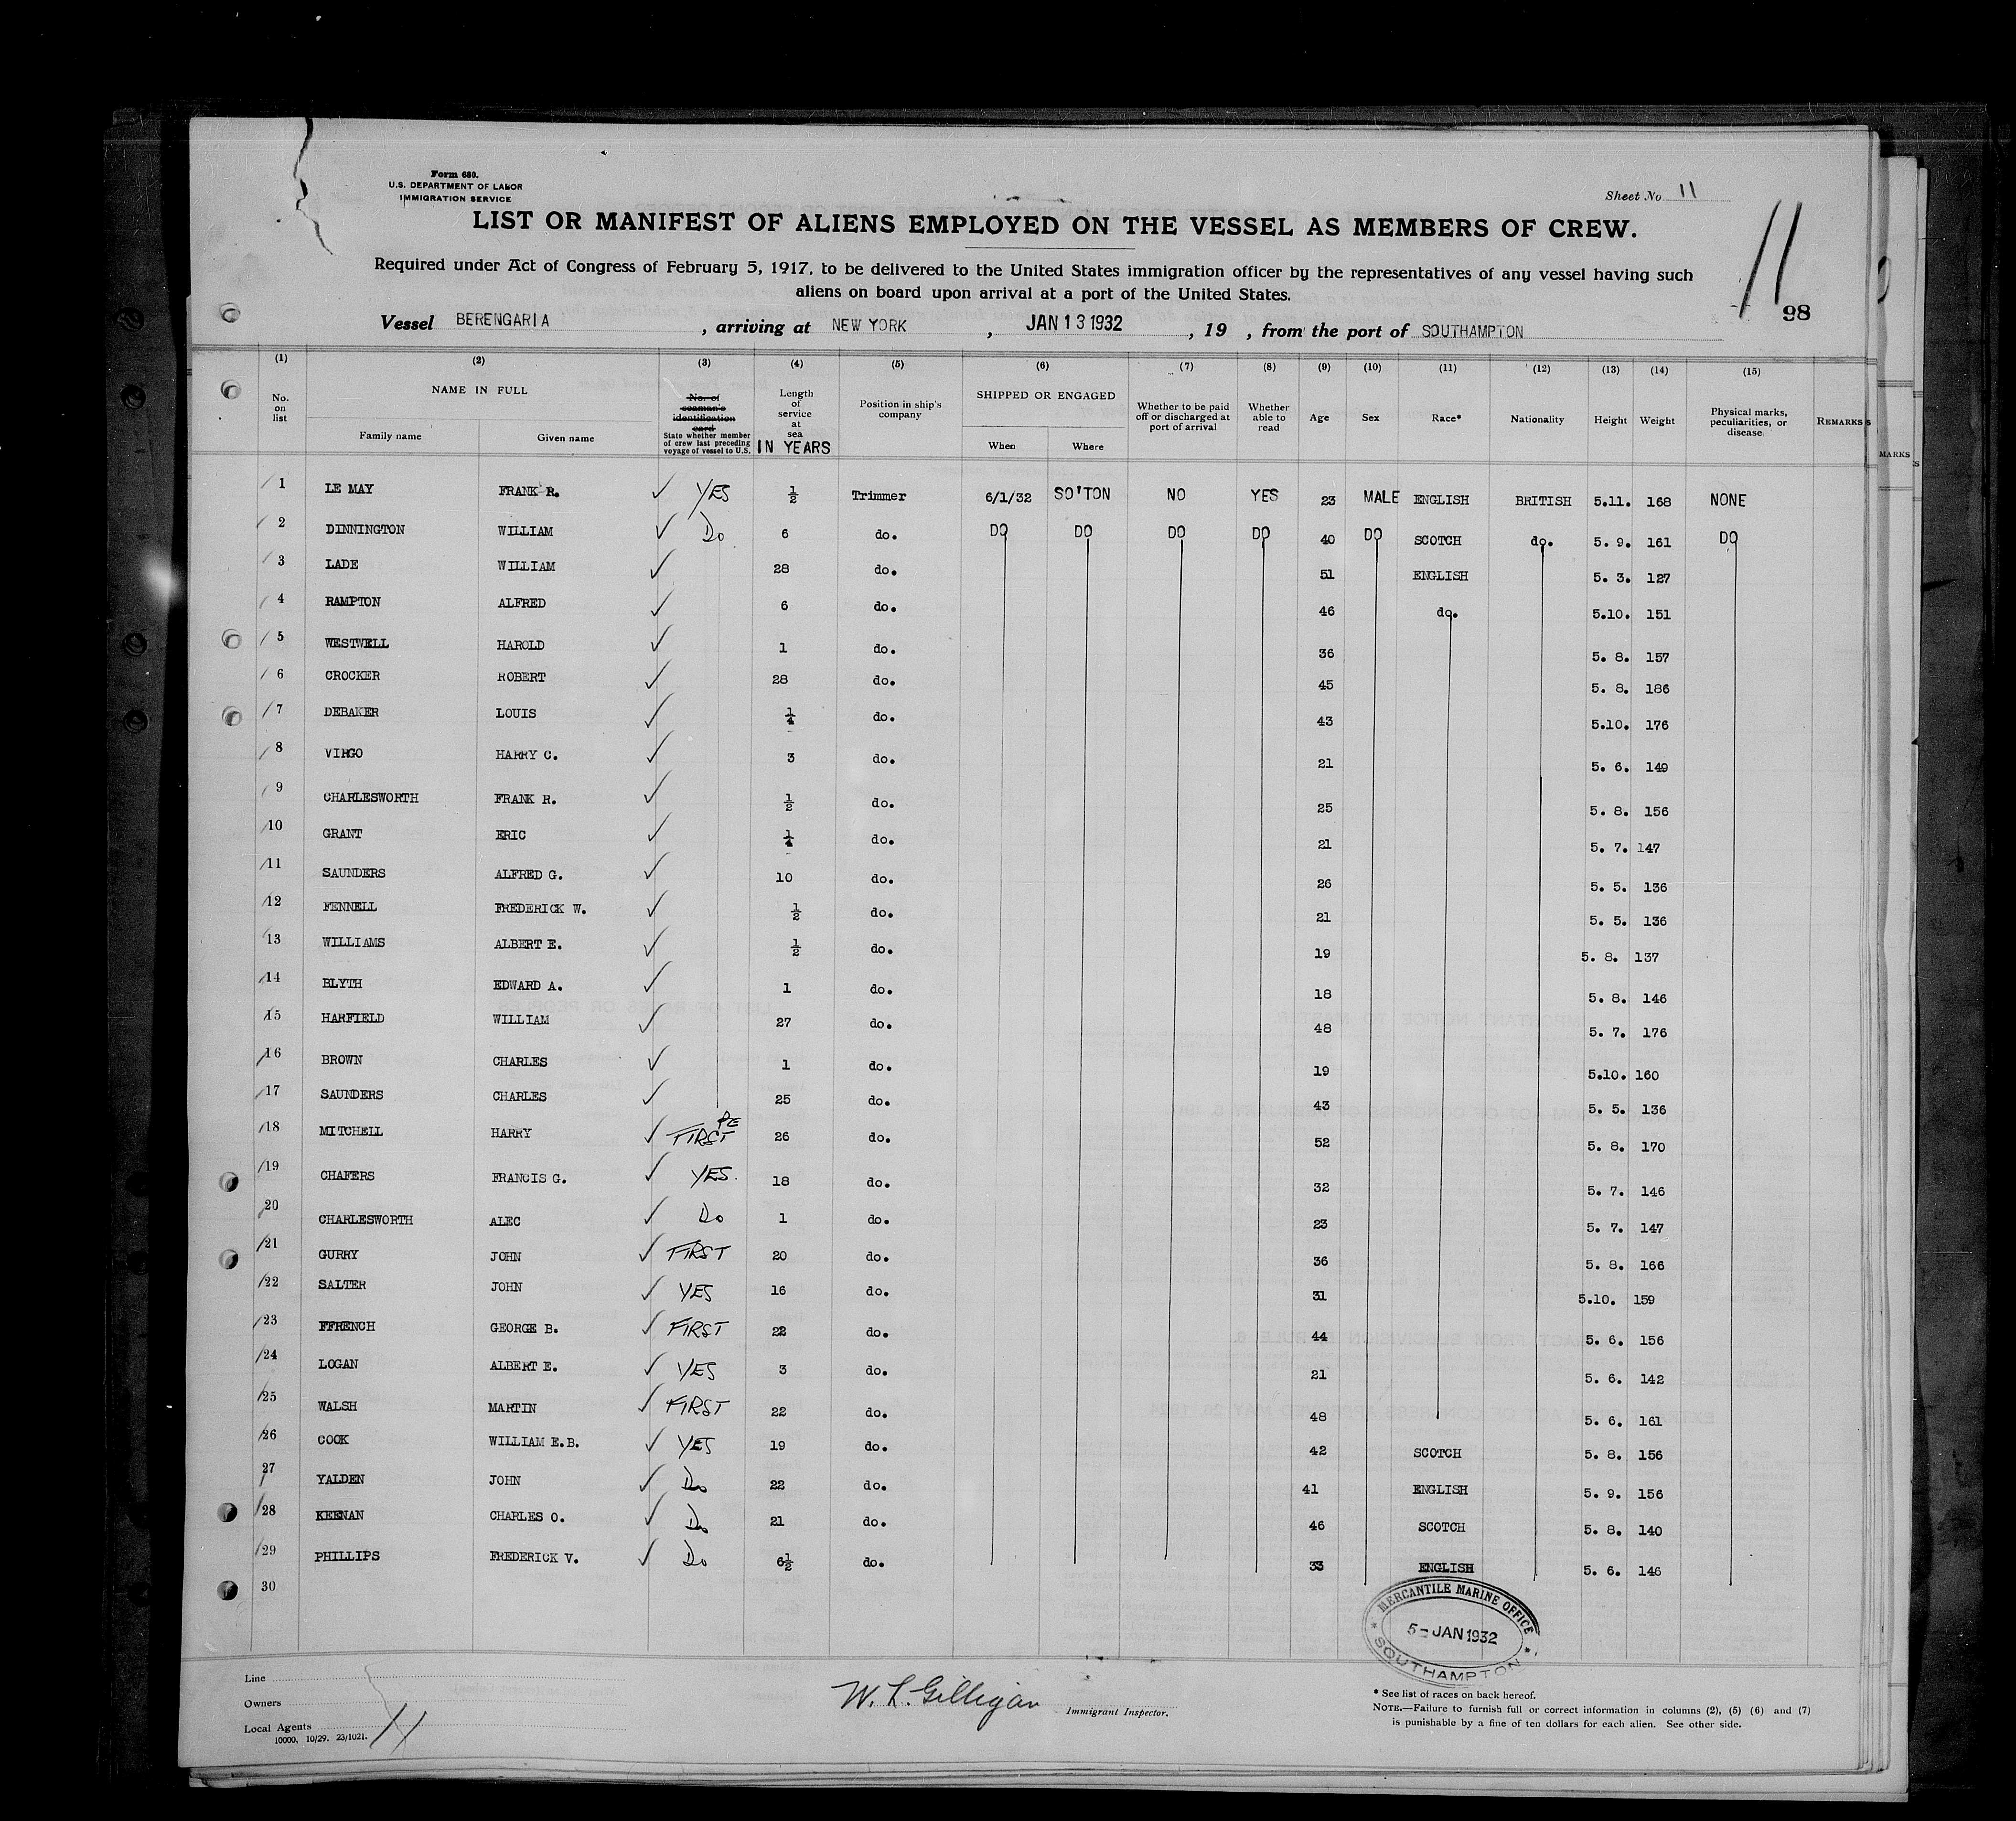 Form 680.
U.S. DEPARTMENT OF LABOR
IMMIGRATION SERVICE
Sheet No 11
LIST OR MANIFEST OF ALIENS EMPLOYED ON THE VESSEL AS MEMBERS OF CREW.
11
Required under Act of Congress of February 5, 1917, to be delivered to the United States immigration officer by the representatives of any vessel having such
aliens on board upon arrival at a port of the United States.
98
Vessel BERENGARIA, arriving at NEW YORK, JAN 13 1932, 19 , from the port of SOUTHAMPTON
(1) (2) (3) (4) (5) (6) (7) (8) (9) (10) (11) (12) (13) (14) (15)
No. on list NAME IN FULL Family name Given name No. of seaman's identification card State whether member of crew last preceding voyage of vessel to U.S. Length of service at sea IN YEARS Position in ship's company SHIPPED OR ENGAGED When Where Whether to be paid off or discharged at port of arrival Whether able to read Age Sex Race* Nationality Height Weight Physical marks, peculiarities, or disease. REMARKS
MARKS
1 LE MAY FRANK R. ✓ YES ½ Trimmer 6/1/32 SO'TON NO YES 23 MALE ENGLISH BRITISH 5.11. 168 NONE
2 DINNINGTON WILLIAM ✓ Do 6 do. DO DO DO DO 40 DO SCOTCH do. 5. 9. 161 DO
3 LADE WILLIAM ✓ 28 do. 51 ENGLISH 5. 3. 127
4 RAMPTON ALFRED ✓ 6 do. 46 do. 5.10. 151
5 WESTWELL HAROLD ✓ 1 do. 36 5. 8. 157
6 CROCKER ROBERT ✓ 28 do. 45 5. 8. 186
7 DEBAKER LOUIS ✓ ¼ do. 43 5.10. 176
8 VIRGO HARRY C. ✓ 3 do. 21 5. 6. 149
9 CHARLESWORTH FRANK R. ✓ ½ do. 25 5. 8. 156
10 GRANT ERIC ✓ ¼ do. 21 5. 7. 147
11 SAUNDERS ALFRED G. ✓ 10 do. 26 5. 5. 136
12 FENNELL FREDERICK W. ✓ ½ do. 21 5. 5. 136
13 WILLIAMS ALBERT E. ✓ ½ do. 19 5. 8. 137
14 BLYTH EDWARD A. ✓ 1 do. 18 5. 8. 146
15 HARFIELD WILLIAM ✓ 27 do. 48 5. 7. 176
16 BROWN CHARLES ✓ 1 do. 19 5.10. 160
17 SAUNDERS CHARLES ✓ 25 do. 43 5. 5. 136
18 MITCHELL HARRY ✓ FIRST 26 do. 52 5. 8. 170
19 CHAFERS FRANCIS G. ✓ YES. 18 do. 32 5. 7. 146
20 CHARLESWORTH ALEC ✓ Do 1 do. 23 5. 7. 147
21 GURRY JOHN ✓ FIRST 20 do. 36 5. 8. 166
22 SALTER JOHN ✓ YES 16 do. 31 5.10. 159
23 FFRENCH GEORGE B. ✓ FIRST 22 do. 44 5. 6. 156
24 LOGAN ALBERT E. ✓ YES 3 do. 21 5. 6. 142
25 WALSH MARTIN ✓ FIRST 22 do. 48 5. 6. 161
26 COOK WILLIAM E.B. ✓ YES 19 do. 42 SCOTCH 5. 8. 156
27 YALDEN JOHN ✓ Do 22 do. 41 ENGLISH 5. 9. 156
28 KEENAN CHARLES O. ✓ Do 21 do. 46 SCOTCH 5. 8. 140
29 PHILLIPS FREDERICK V. ✓ Do 6½ do. 33 ENGLISH 5. 6. 146
30
MERCANTILE MARINE OFFICE
5-JAN 1932
SOUTHAMPTON
Line
Owners
Local Agents
10000, 10/29. 23/1021.
11
W. L. Gilligan Immigrant Inspector.
* See list of races on back hereof.
NOTE.—Failure to furnish full or correct information in columns (2), (5) (6) and (7)
is punishable by a fine of ten dollars for each alien. See other side.